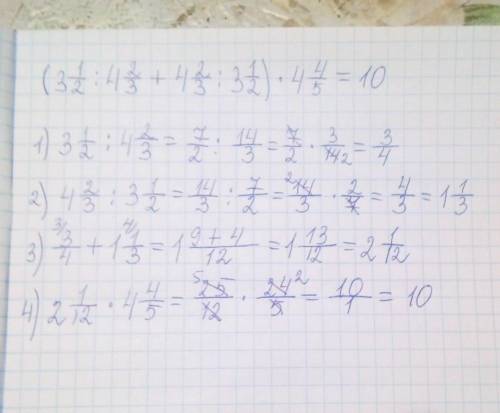 (3 1/2 : 4 2/3 + 4 2/3 : 3 1/2) · 4 4/5 = 10
1) 3 1/2 : 4 2/3 = 7/2 : 14/3 = 7/2 · 3/14 2 = 3/4
2) 4 2/3 : 3 1/2 = 14/3 : 7/2 = 2 14/3 · 2/7 = 4/3 = 1 1/3
3) 3/ 3/4 + 1 4/ 1/3 = 1 9+4/12 = 1 13/12 = 2 1/12
4) 2 1/12 · 4 4/5 = 5 25/12 · 24 2/5 = 10/1 = 10